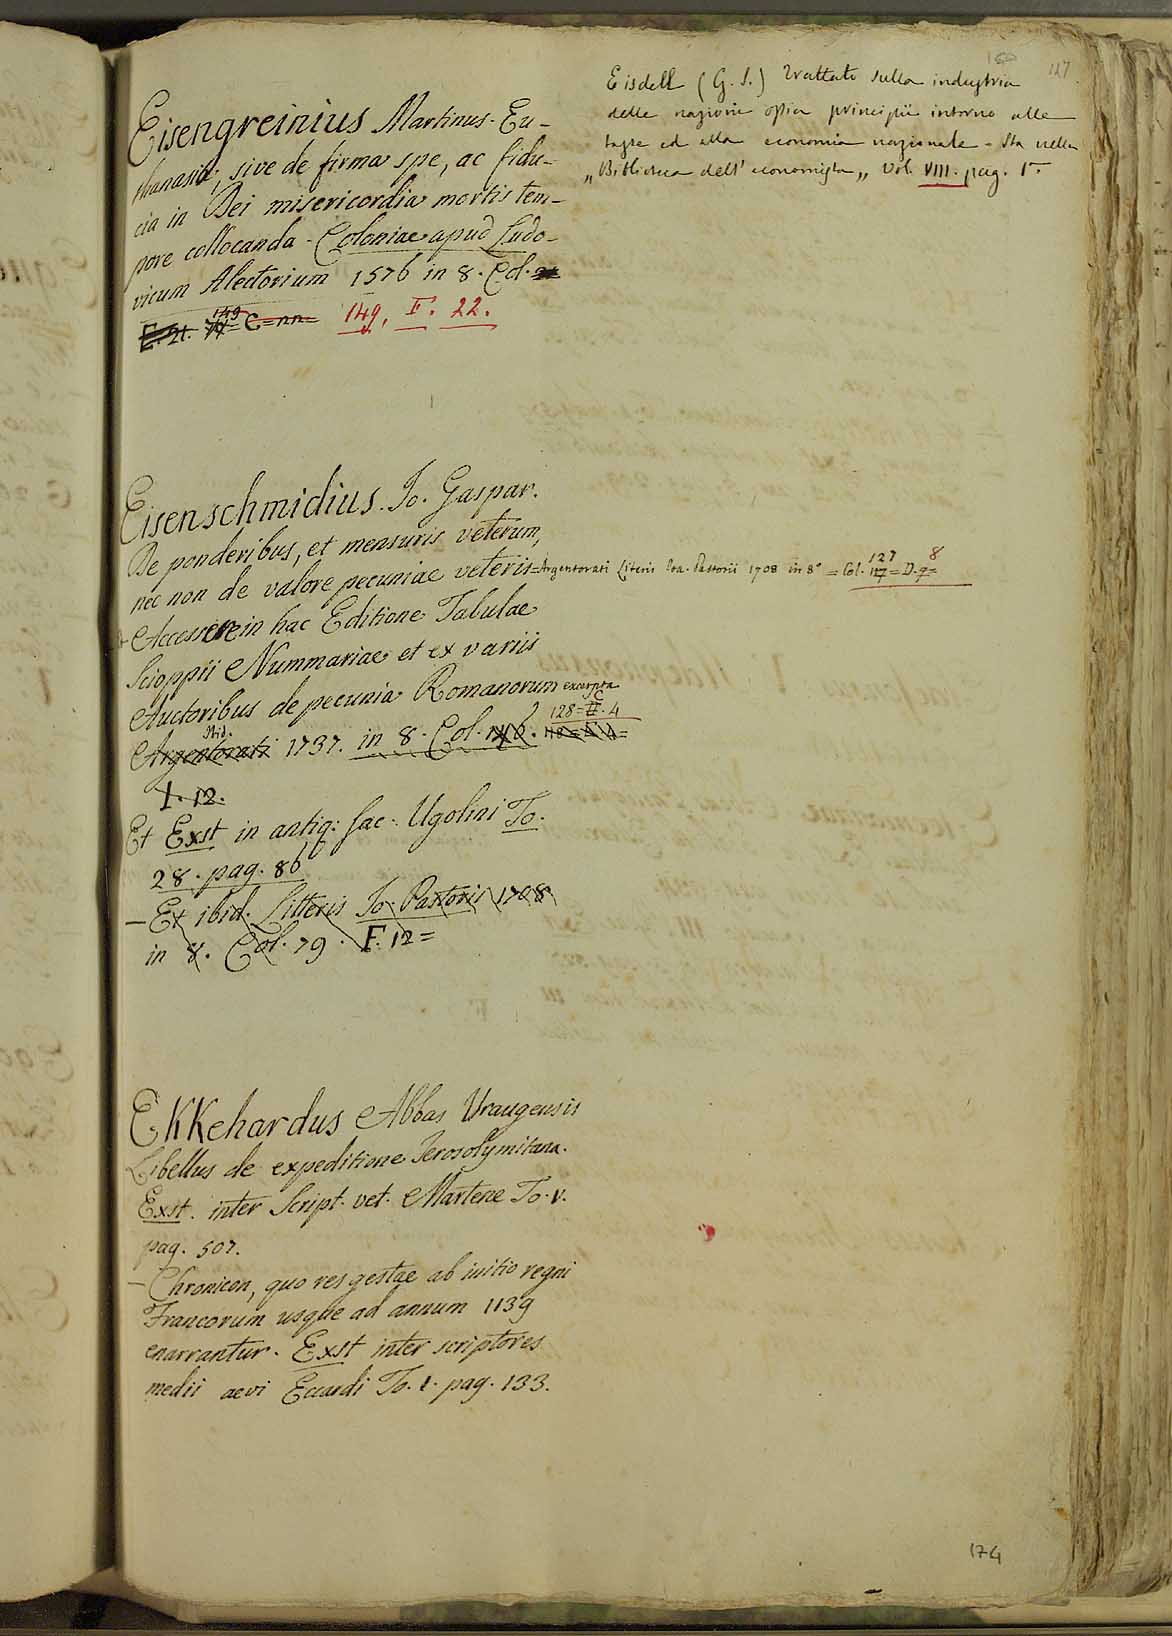 127
Eisdell (G. S.) Trattato sulla industria
delle nazioni ossia principii intorno alle
tasse ed alla economia nazionale - Sta nella
„Biblioteca dell' economista„ Vol. VIII. pag. 1a.
Eisengreinius Martinus - Eu-
thanasia, sive de firma spe, ac fidu-
cia in Dei misericordia mortis tem-
pore collocanda - Coloniae apud Ludo-
vicum Alectorium 1576 in 8. Col.
149, F. 22.
Eisenschmidius. Jo. Gaspar.
De ponderibus, et mensuris veterum,
nec non de valore pecuniae veteris = Argentorati Literis Joa. Pastorii 1708 in 8° = Col. 127 = D. 8
+ Accessere in hac Editione Tabulae
Scioppii Nummariae et ex variis
Auctoribus de pecunia Romanorum excerpta
Argentorati Ibid. 1737. in 8. Col. 128 = C. 4
I. 12.
Et Exst in antiq: sac. Ugolini To.
28. pag. 86
- Et ibid. Litteris Jo. Pastorii 1708
in 8. Col. 79. F. 12 =
EKKehardus Abbas Uraugensis
Libellus de expeditione Jerosolymitana.
Exst. inter Script. vet. Martene To. V.
pag. 507.
- Chronicon, quo res gestae ab initio regni
Francorum usque ad annum 1139
enarrantur. Exst inter scriptores
medii aevi Eccardi To. 1. pag. 133.
174